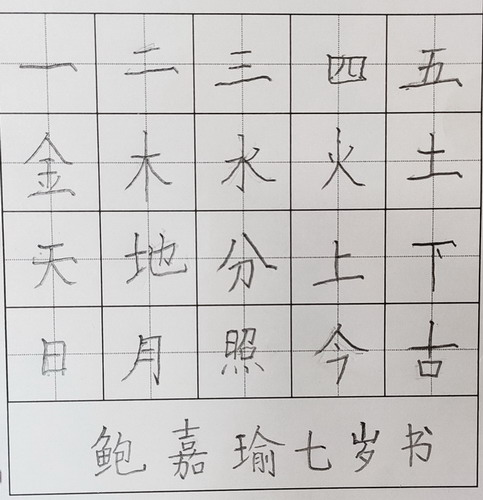 一二三四五
金木水火土
天地分上下
日月照今古
鲍嘉瑜七岁书